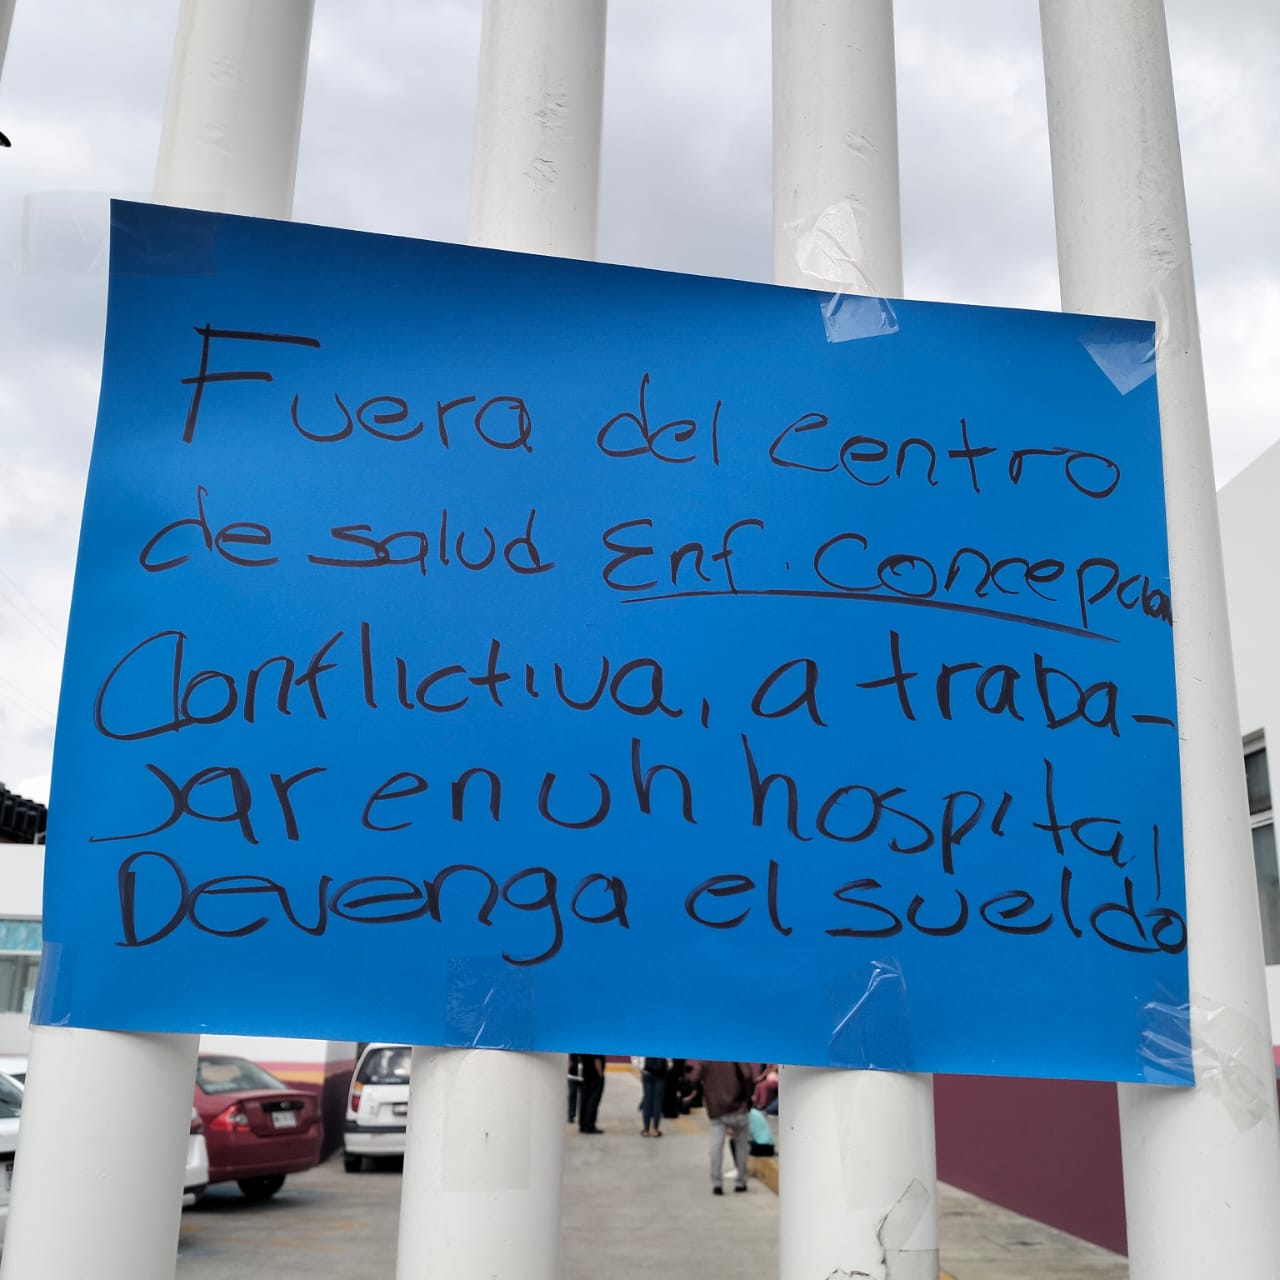 Fuera del centro
de salud Enf. Concepcion
Conflictiva, a traba-
jar en un hospital
Devenga el sueldo